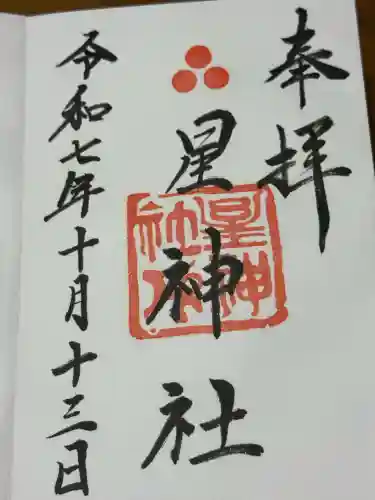 奉拝
星神社
令和七年十月十三日
星神社印